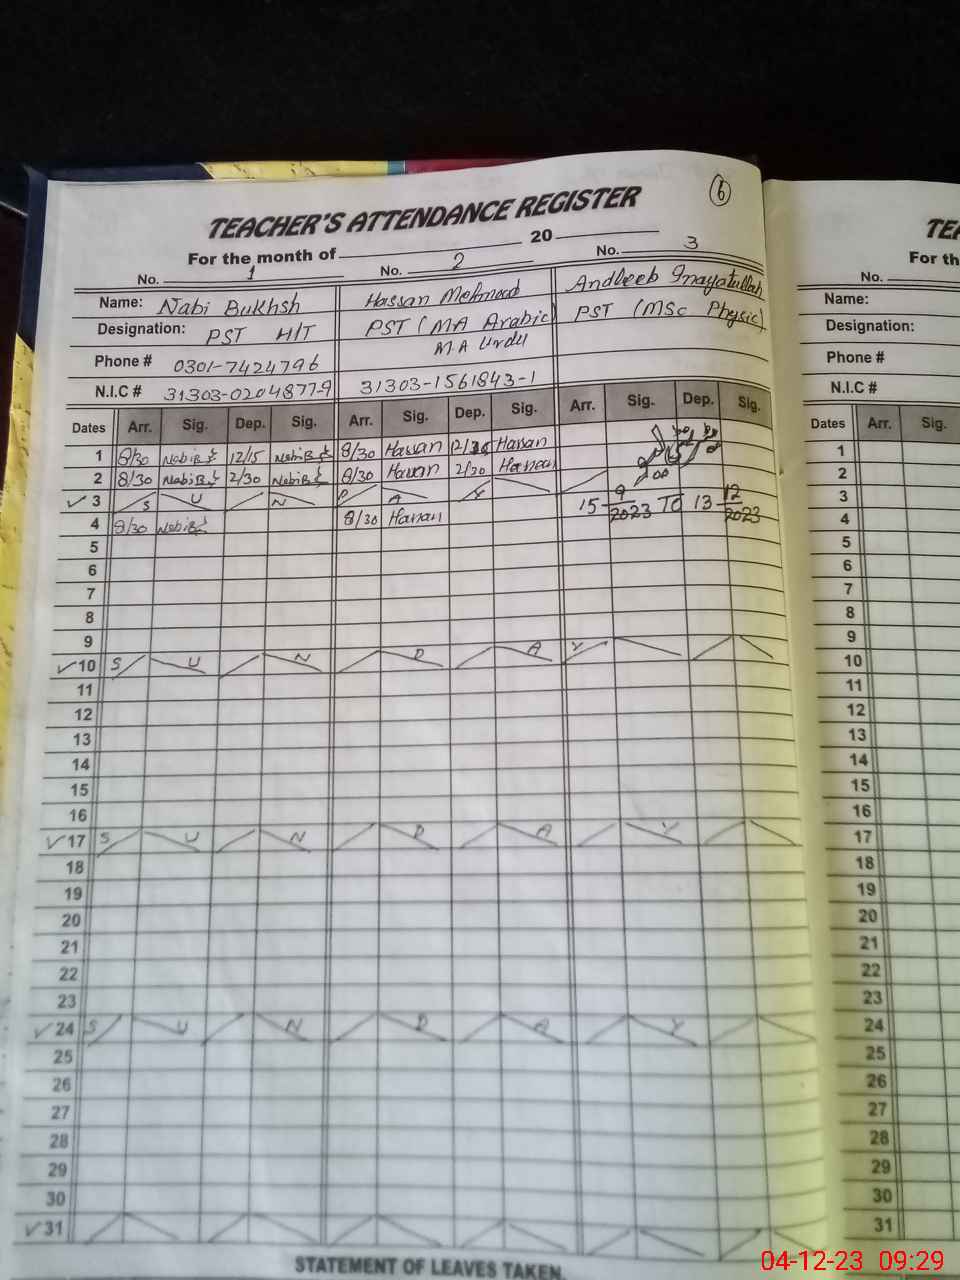 6
TEACHER'S ATTENDANCE REGISTER
For the month of 20
No. 1 No. 2 No. 3
Name: Nabi Bukhsh Hassan Mehmood Andleeb Inayatullah
Designation: PST H/T PST (MA Arabic) PST (MSc Physic)
M.A Urdu
Phone # 0301-7424796
N.I.C # 31303-0204877-9 31303-1561843-1
Dates Arr. Sig. Dep. Sig. Arr. Sig. Dep. Sig. Arr. Sig. Dep. Sig.
1 8/30 NabiB 12/15 NabiB 8/30 Hassan 12/15 Hassan
2 8/30 NabiB 2/30 NabiB 8/30 Hassan 2/30 Hassan
3 S U N D A Y
4 8/30 NabiB 8/30 Hassan 15-9/2023 TO 13-12/2023
5
6
7
8
9
10 S U N D A Y
11
12
13
14
15
16
17 S U N D A Y
18
19
20
21
22
23
24 S U N D A Y
25
26
27
28
29
30
31
STATEMENT OF LEAVES TAKEN.
For th
No.
Name:
Designation:
Phone #
N.I.C #
Dates Arr. Sig.
1
2
3
4
5
6
7
8
9
10
11
12
13
14
15
16
17
18
19
20
21
22
23
24
25
26
27
28
29
30
31
04-12-23 09:29